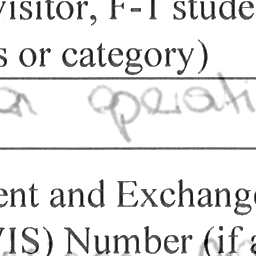 visitor, F-1 stude
s or category)
an operati
ent and Exchange
VIS) Number (if a